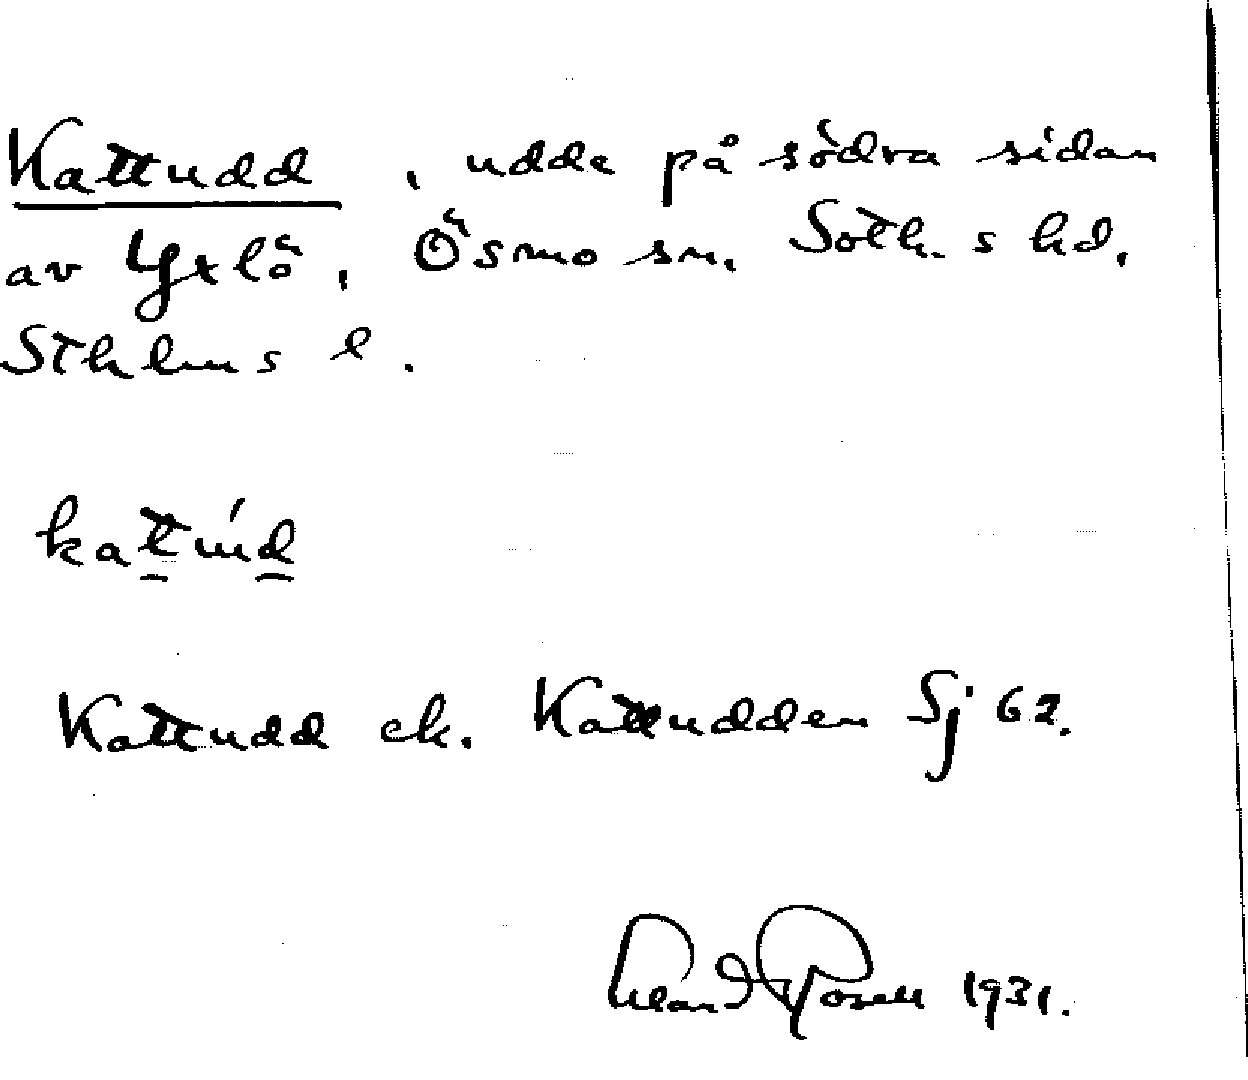 Kattudd, udde på södra sidan
av Yxlö, Ösmo sn. Soth. s hd.
Sthlms l.
Kattudd ek. Kattudden Sj 62.
Erland Rosell 1931.